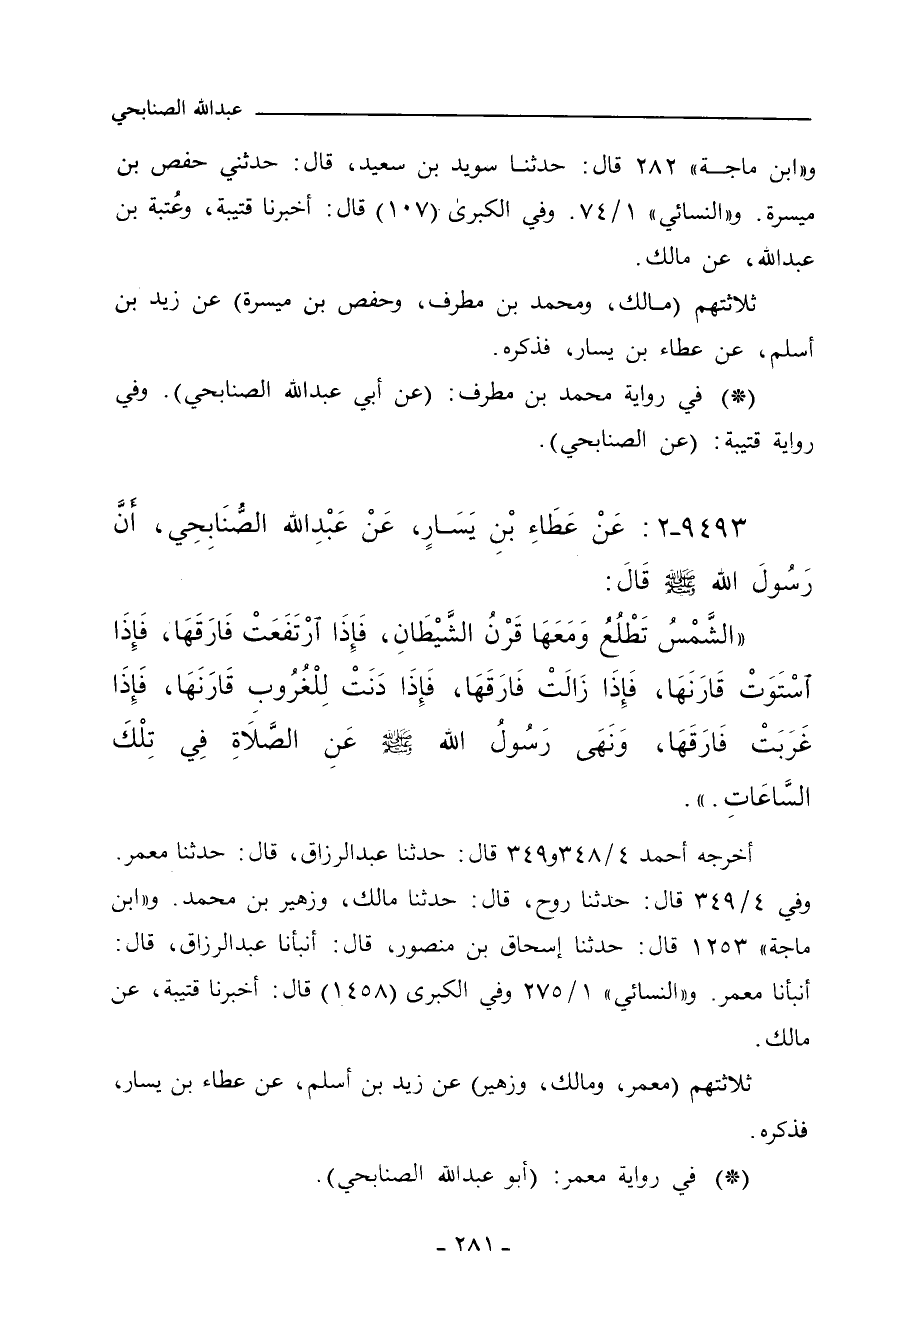 عبدالله الصنابحي
و«ابن ماجـــة» ٢٨٢ قال: حدثنـا سويد بن سعيد، قال: حدثني حفص بن
ميسرة. و«النسائي» ٧٤/١. وفي الكبرىٰ (١٠٧) قال: أخبرنا قتيبة، وعُتبة بن
عبدالله، عن مالك.
ثلاثتهم (مـالك، ومحمد بن مطرف، وحفص بن ميسرة) عن زيد بن
أسلم، عن عطاء بن يسار، فذكره.
(*) في رواية محمد بن مطرف: (عن أبي عبدالله الصنابحي). وفي
رواية قتيبة: (عن الصنابحي).
٩٤٩٣-٢: عَنْ عَطَاءِ بْنِ يَسَـارٍ، عَنْ عَبْدِالله الصُّنَابِحِي، أَنَّ
رَسُولَ الله ﷺ قَالَ:
«الشَّمْسُ تَطْلُعُ وَمَعَهَا قَرْنُ الشَّيْطَانِ، فَإِذَا ٱرْتَفَعَتْ فَارَقَهَا، فَإِذَا
ٱسْتَوَتْ قَارَنَهَا، فَإِذَا زَالَتْ فَارَقَهَا، فَإِذَا دَنَتْ لِلْغُرُوبِ قَارَنَهَا، فَإِذَا
غَرَبَتْ فَارَقَهَا، وَنَهَى رَسُولُ الله ﷺ عَنِ الصَّلَاةِ فِي تِلْكَ
السَّاعَاتِ.».
أخرجه أحمد ٣٤٨/٤و٣٤٩ قال: حدثنا عبدالرزاق، قال: حدثنا معمر.
وفي ٣٤٩/٤ قال: حدثنا روح، قال: حدثنا مالك، وزهير بن محمد. و«ابن
ماجة» ١٢٥٣ قال: حدثنا إسحاق بن منصور، قال: أنبأنا عبدالرزاق، قال:
أنبأنا معمر. و«النسائي» ٢٧٥/١ وفي الكبرى (١٤٥٨) قال: أخبرنا قتيبة، عن
مالك.
ثلاثتهم (معمر، ومالك، وزهير) عن زيد بن أسلم، عن عطاء بن يسار،
فذكره.
(*) في رواية معمر: (أبو عبدالله الصنابحي).
- ٢٨١ -